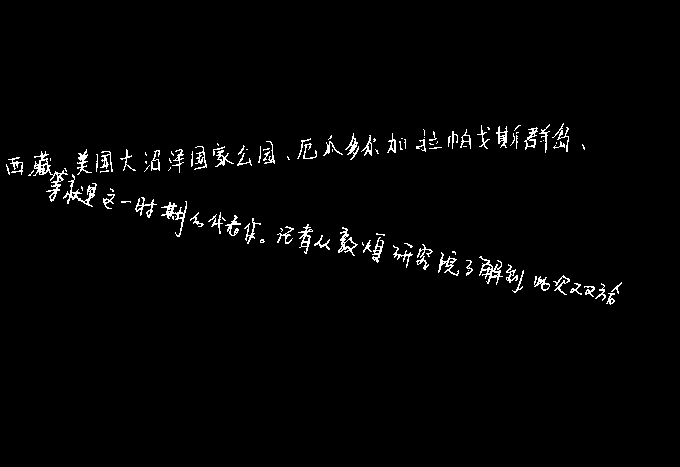 西藏、美国大沼泽国家公园、厄瓜多尔加拉帕戈斯群岛、
等就是这一时期的代表作。记者从敦煌研究院了解到此次双方合